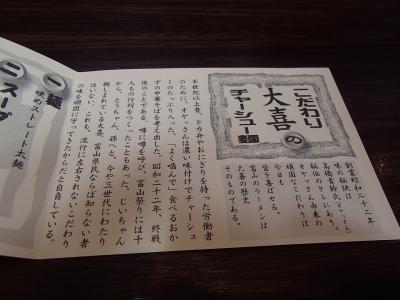 こだわり
大喜の
チャーシュー麺
創業昭和二十二年
味の秘訣は
高橋青幹氏(オヤッさん)
秘伝のタレにあり。
オヤッさん由来の
頑固なこだわりは
今日も
皆を喜ばせる。
富山のラーメンは
大喜の歴史
そのものである。
半世紀以上昔、ドカ弁やおにぎりを持った労働者
のために、オヤッさんは濃い味付けでチャーシュ
ーのたっぷり入った、「よく噛んで」食べるおか
ずの中華そばを考え出した。昭和二十二年、終戦
後のことである。噂は噂を呼び、富山祭りには千
人もの行列をつくったこともあった。じいちゃん
から、とうちゃん、孫へと、今や三世代にわたり
親しまれている大喜。富山県民ならば知らない者
はいない。これも、流行に左右されないこだわり
の味を頑固に守ってきたからだと自負している。
一 麺
硬めストレート太麺
二 スープ